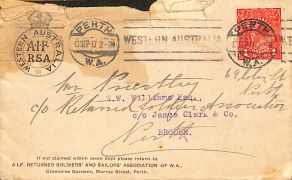 WESTERN AUSTRALIA
A.I.F.
RSA
PERTH
13 SEP 17 2-
W.A.
WESTERN AUSTRALIA
PERTH
W.A.
69
Perth
Mr
W.W. Williams Esq.,
c/o Returned Soldiers Association
c/o James Clark & Co.
Perth
BROOME.
If not claimed within seven days please return to
A.I.F. RETURNED SOLDIERS' AND SAILORS' ASSOCIATION OF W.A.,
Cremorne Gardens, Murray Street, Perth.